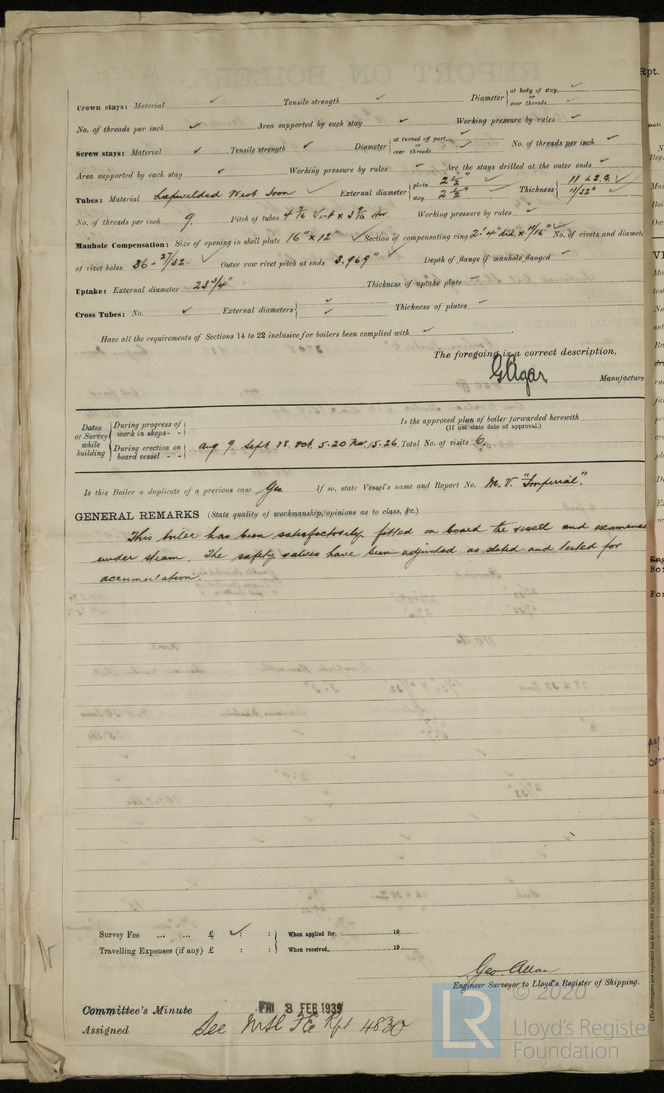 Crown stays: Material ✓ Tensile strength ✓ Diameter { at body of stay ✓ or over threads ✓
No. of threads per inch ✓ Area supported by each stay ✓ Working pressure by rules ✓
Screw stays: Material ✓ Tensile strength ✓ Diameter { at turned off part ✓ or over threads ✓ No. of threads per inch ✓
Area supported by each stay ✓ Working pressure by rules ✓ Are the stays drilled at the outer ends ✓
Tubes: Material Lapwelded West Iron ✓ External diameter { plain 2 1/2" ✓ stay 2 1/2" ✓ Thickness { 11 L.S.G. ✓ 11/32"
No. of threads per inch 9. Pitch of tubes 4 3/16 Vert x 3 9/16 Hor Working pressure by rules ✓
Manhole Compensation: Size of opening in shell plate 16" x 12" ✓ Section of compensating ring 2'-4" dia x 11/16" No. of rivets and diamete
of rivet holes 36 - 27/32 ✓ Outer row rivet pitch at ends 3.969" ✓ Depth of flange if manhole flanged ✓
Uptake: External diameter 23 3/4" Thickness of uptake plate
Cross Tubes: No. ✓ External diameters { ✓ ✓ Thickness of plates ✓
Have all the requirements of Sections 14 to 22 inclusive for boilers been complied with ✓
The foregoing is a correct description,
G Agar Manufacture
Dates of Survey while building { During progress of work in shops - - { Is the approved plan of boiler forwarded herewith
(If not state date of approval.)
During erection on board vessel - - { Aug 9. Sept. 28. Oct. 5. 20 Nov. 15. 26 Total No. of visits 6.
Is this Boiler a duplicate of a previous case Yes If so, state Vessel's name and Report No. M.V. "Imperial".
GENERAL REMARKS (State quality of workmanship, opinions as to class, &c.)
This boiler has been satisfactorily fitted on board the vessel and examined
under steam. The safety valves have been adjusted as stated and tested for
accumulation.
Survey Fee ... ... £ ✓ : : } When applied for, 19
Travelling Expenses (if any) £ : : } When received, 19
Geo Allan
Engineer Surveyor to Lloyd's Register of Shipping.
Committee's Minute FRI 3 FEB 1939
Assigned See Mtl FE Rpt 4830
LR © 2020
Lloyd's Register
Foundation